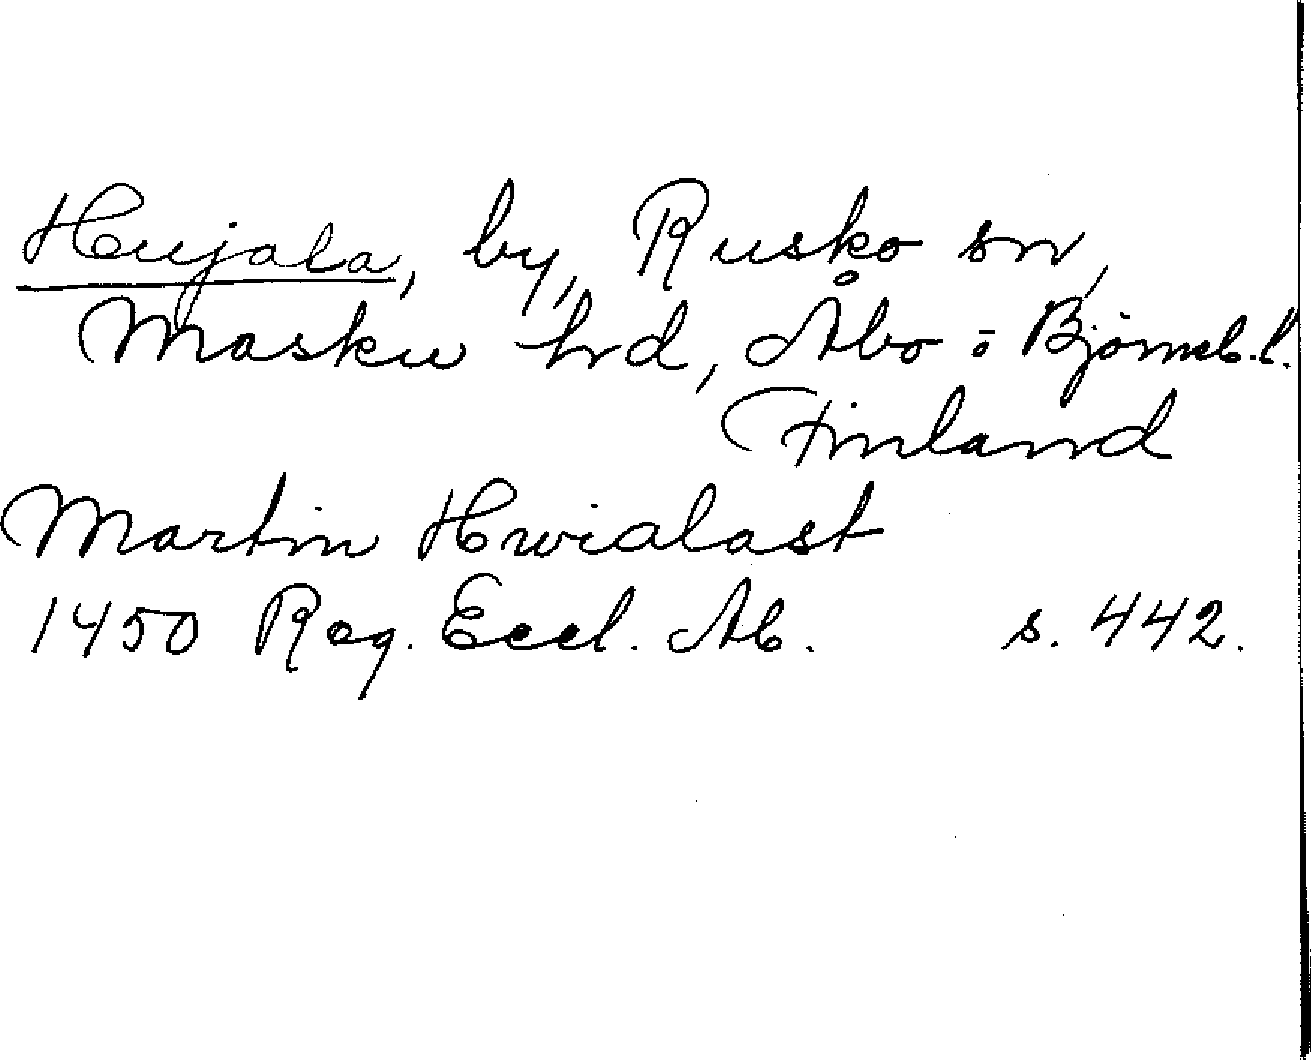 Hujala, by, Rusko sn,
Masku hrd, Åbo o Björneb. l.
Finland
Martin Hwialast
1450 Reg. Eccl. Ab. s. 442.